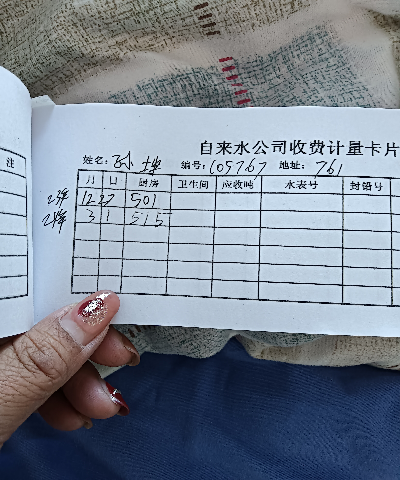 注
自来水公司收费计量卡片
姓名: 编号: 105767 地址: 761
月 日 厨房 卫生间 应收吨 水表号 封铅号
23年 12 27 501
24年 3 1 515